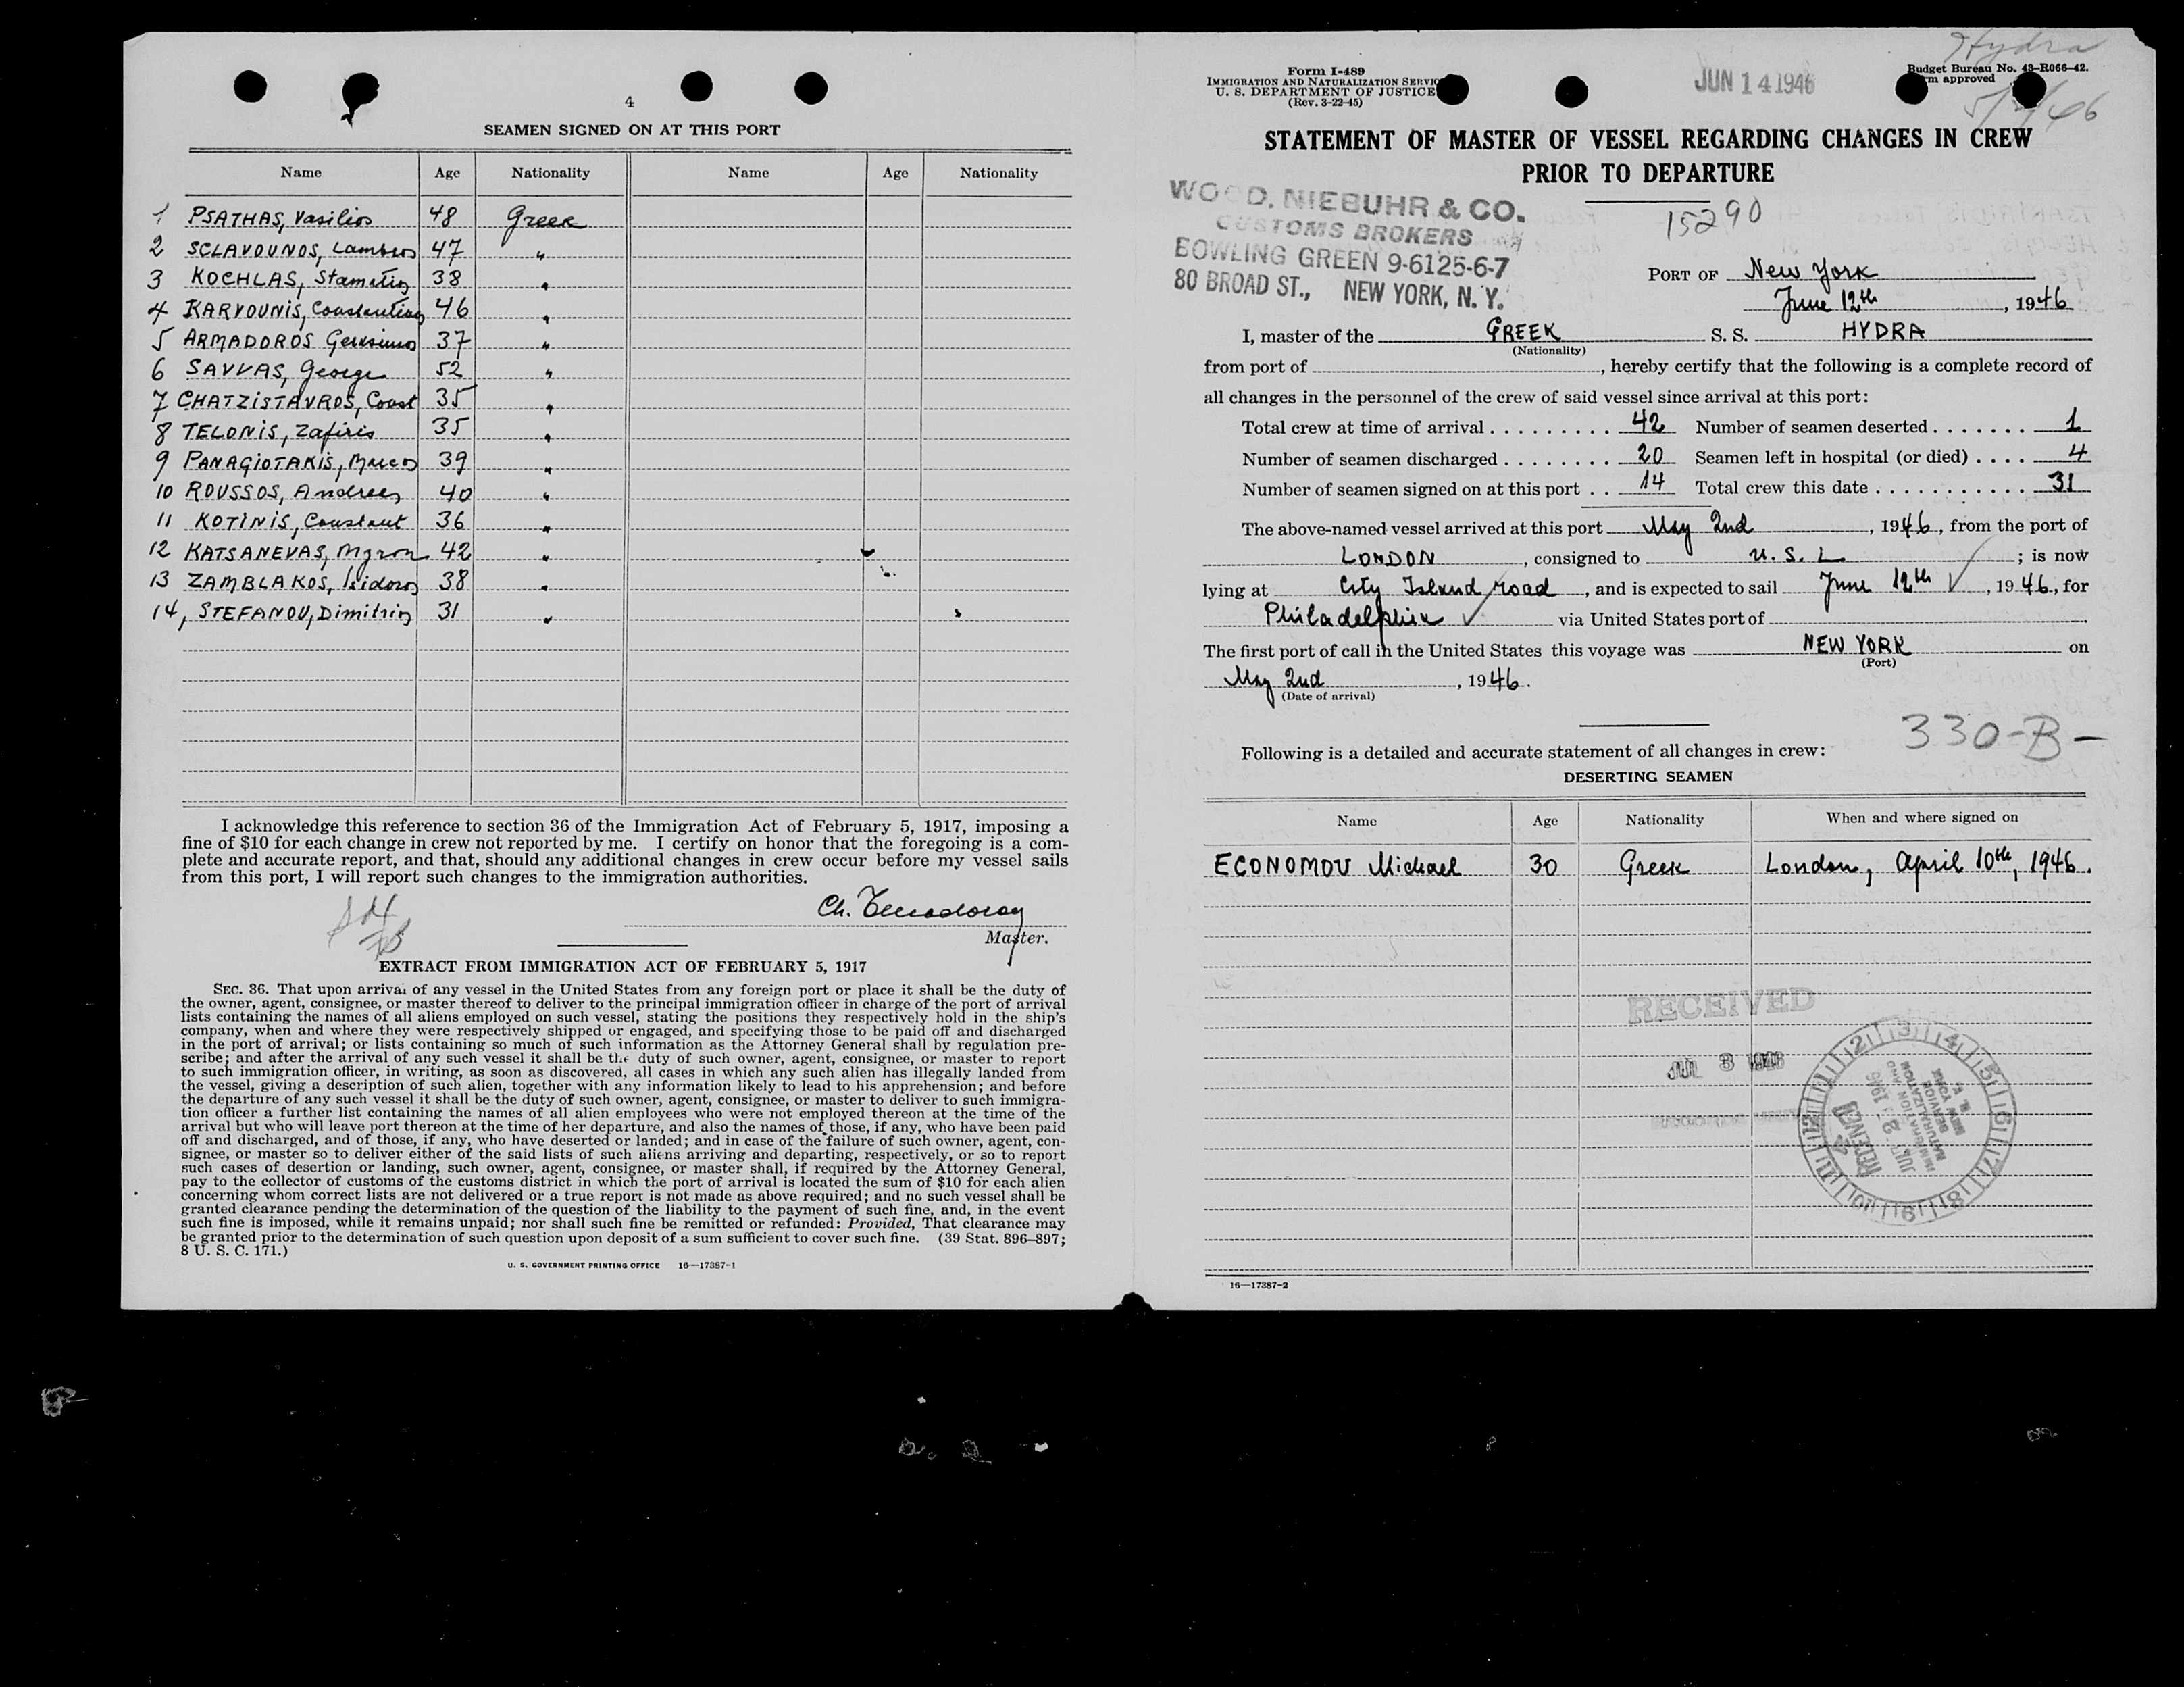 4
SEAMEN SIGNED ON AT THIS PORT
Name Age Nationality Name Age Nationality
1 PSATHAS, Vasilios 48 Greek
2 SCLAVOUNOS, Lambros 47 "
3 KOCHLAS, Stamatios 38 "
4 KARVOUNIS, Constantinos 46 "
5 ARMADOROS Gerasimos 37 "
6 SAVVAS, George 52 "
7 CHATZISTAVROS, Const 35 "
8 TELONIS, Zafiris 35 "
9 PANAGIOTAKIS, Marcos 39 "
10 ROUSSOS, Andreas 40 "
11 KOTINIS, Constant 36 "
12 KATSANEVAS, Myron 42 "
13 ZAMBLAKOS, Isidoros 38 "
14, STEFANOU, Dimitrios 31 "
I acknowledge this reference to section 36 of the Immigration Act of February 5, 1917, imposing a
fine of $10 for each change in crew not reported by me. I certify on honor that the foregoing is a com-
plete and accurate report, and that, should any additional changes in crew occur before my vessel sails
from this port, I will report such changes to the immigration authorities.
Ch.
Master.
EXTRACT FROM IMMIGRATION ACT OF FEBRUARY 5, 1917
SEC. 36. That upon arrival of any vessel in the United States from any foreign port or place it shall be the duty of
the owner, agent, consignee, or master thereof to deliver to the principal immigration officer in charge of the port of arrival
lists containing the names of all aliens employed on such vessel, stating the positions they respectively hold in the ship's
company, when and where they were respectively shipped or engaged, and specifying those to be paid off and discharged
in the port of arrival; or lists containing so much of such information as the Attorney General shall by regulation pre-
scribe; and after the arrival of any such vessel it shall be the duty of such owner, agent, consignee, or master to report
to such immigration officer, in writing, as soon as discovered, all cases in which any such alien has illegally landed from
the vessel, giving a description of such alien, together with any information likely to lead to his apprehension; and before
the departure of any such vessel it shall be the duty of such owner, agent, consignee, or master to deliver to such immigra-
tion officer a further list containing the names of all alien employees who were not employed thereon at the time of the
arrival but who will leave port thereon at the time of her departure, and also the names of those, if any, who have been paid
off and discharged, and of those, if any, who have deserted or landed; and in case of the failure of such owner, agent, con-
signee, or master so to deliver either of the said lists of such aliens arriving and departing, respectively, or so to report
such cases of desertion or landing, such owner, agent, consignee, or master shall, if required by the Attorney General,
pay to the collector of customs of the customs district in which the port of arrival is located the sum of $10 for each alien
concerning whom correct lists are not delivered or a true report is not made as above required; and no such vessel shall be
granted clearance pending the determination of the question of the liability to the payment of such fine, and, in the event
such fine is imposed, while it remains unpaid; nor shall such fine be remitted or refunded: Provided, That clearance may
be granted prior to the determination of such question upon deposit of a sum sufficient to cover such fine. (39 Stat. 896–897;
8 U. S. C. 171.)
U. S. GOVERNMENT PRINTING OFFICE 16—17387-1
Hydra
Form I-489
IMMIGRATION AND NATURALIZATION SERVICE
U. S. DEPARTMENT OF JUSTICE
(Rev. 3-22-45)
JUN 14 1946
Budget Bureau No. 43-R066-42.
approved
STATEMENT OF MASTER OF VESSEL REGARDING CHANGES IN CREW
PRIOR TO DEPARTURE
WOOD, NIEBUHR & CO.
CUSTOMS BROKERS
BOWLING GREEN 9-6125-6-7
80 BROAD ST., NEW YORK, N. Y.
15290
PORT OF New York
June 12th, 1946
I, master of the GREEK S. S. HYDRA
(Nationality)
from port of , hereby certify that the following is a complete record of
all changes in the personnel of the crew of said vessel since arrival at this port:
Total crew at time of arrival . . . . . . . . . . 42 Number of seamen deserted . . . . . . . 1
Number of seamen discharged . . . . . . . . 20 Seamen left in hospital (or died) . . . . 4
Number of seamen signed on at this port . . 14 Total crew this date . . . . . . . . . . . . 31
The above-named vessel arrived at this port May 2nd, 1946, from the port of
LONDON, consigned to U. S. L ; is now
lying at City Island road, and is expected to sail June 12th, 1946, for
Philadelphia via United States port of .
The first port of call in the United States this voyage was NEW YORK on
(Port)
May 2nd, 1946.
(Date of arrival)
330-B-
Following is a detailed and accurate statement of all changes in crew:
DESERTING SEAMEN
Name Age Nationality When and where signed on
ECONOMOU Michael 30 Greek London, April 10th, 1946.
RECEIVED
JUL 3 1946
16—17387-2